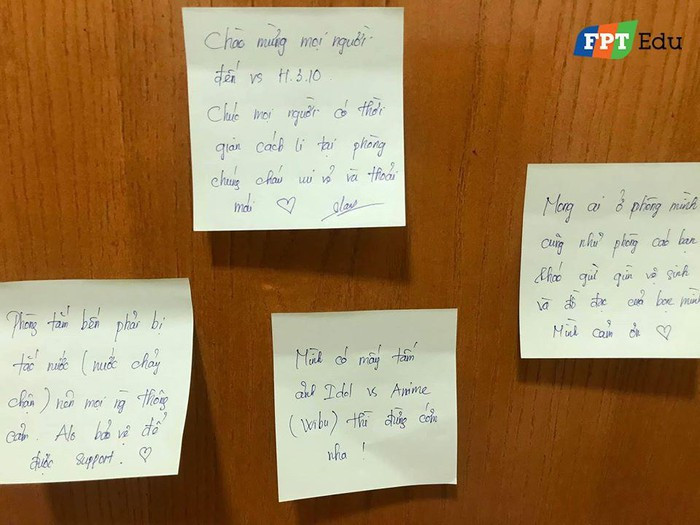 FPT Edu
Chào mừng mọi người
đến vs H.310.
Chúc mọi người có thời
gian cách li tại phòng
chúng cháu vui vẻ và thoải
mái ♡
Mong ai ở phòng mình
cũng như phòng các bạn
khác giữ gìn vệ sinh
và đồ đạc của bạn mình
Mình cảm ơn ♡
Phòng tắm bên phải bị
tắc nước (nước chảy
chậm) nên mọi ng thông
cảm. Alo bảo vệ để
được support. ♡
Mình có mấy tấm
ảnh Idol vs Anime
(Wibu) thì đừng cóm
nha !